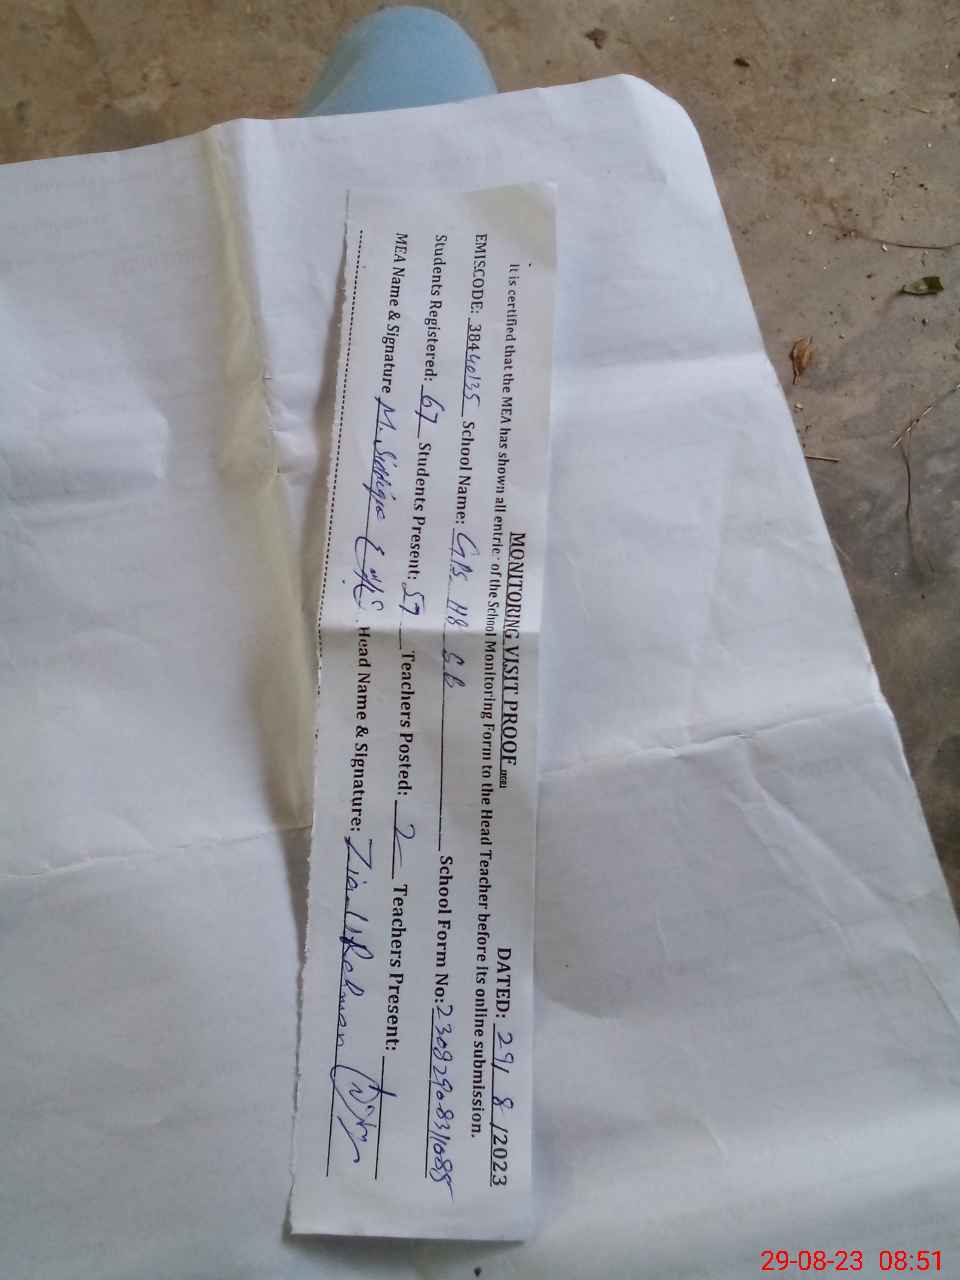 MONITORING VISIT PROOF DATED: 29/8/2023
It is certified that the MEA has shown all entries of the School Monitoring Form to the Head Teacher before its online submission.
EMISCODE: 38440135 School Name: GPS 118 S.B School Form No:
Students Registered: 67 Students Present: 57 Teachers Posted: 2 Teachers Present: 1
MEA Name & Signature M. Siddique Head Name & Signature: Zia Ul Rehman
29-08-23 08:51